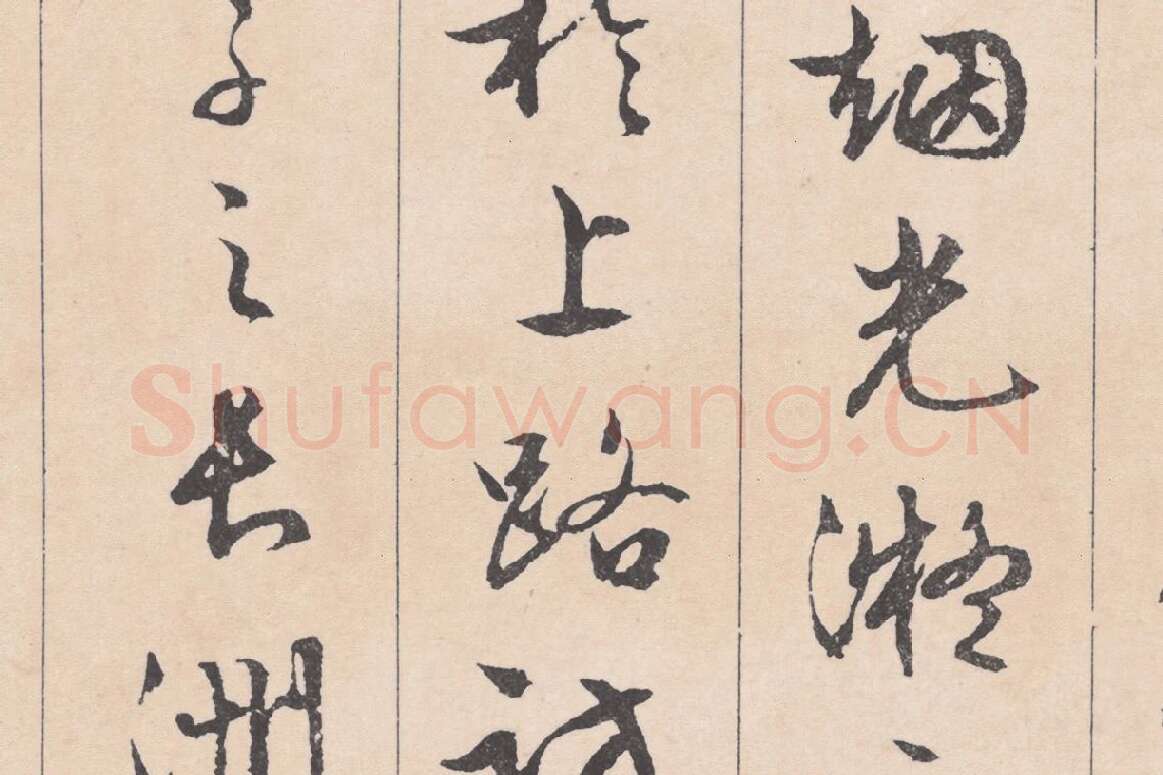 烟光凝
於上路訪
子之長洲
Shufawang.CN